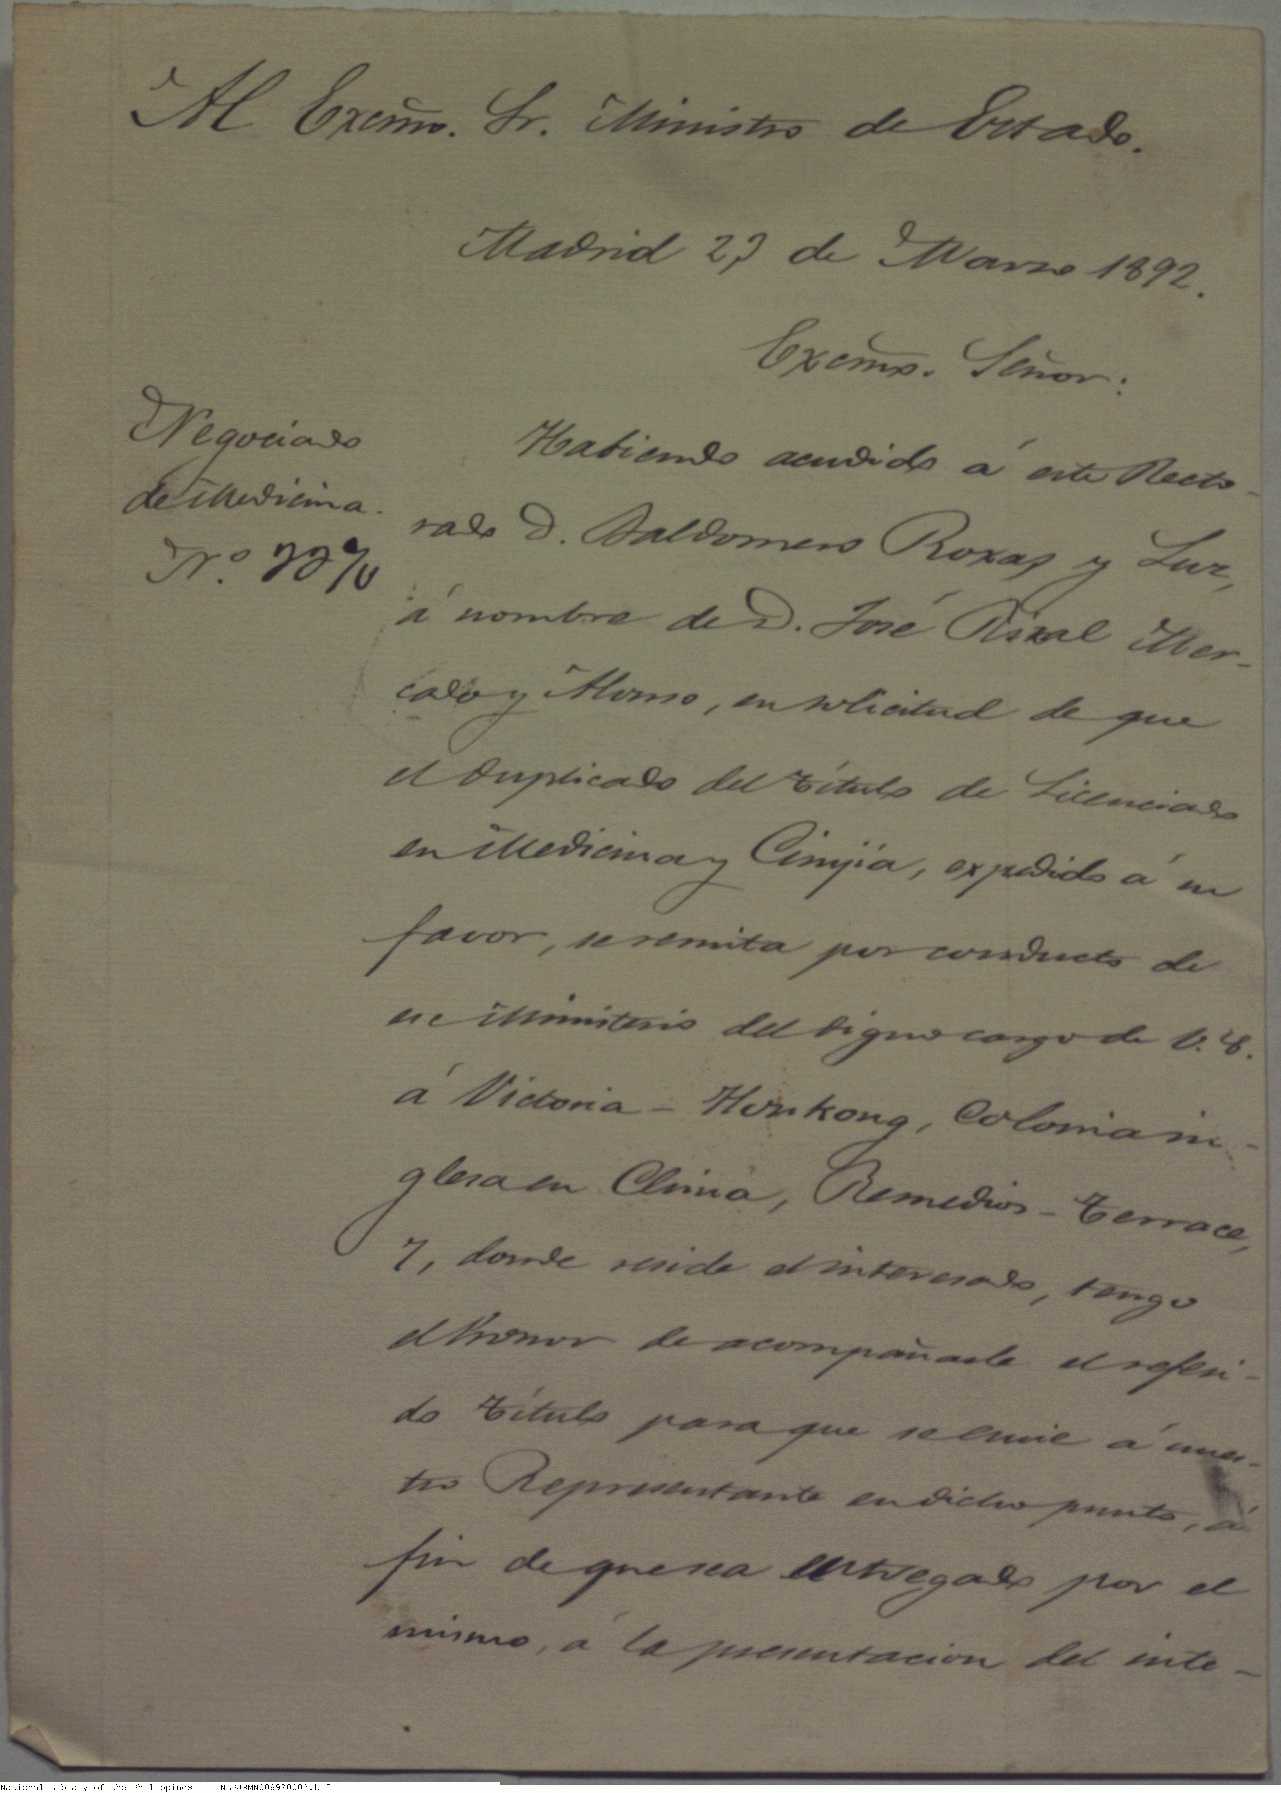 Al Excmo. Sr. Ministro de Estado.
Madrid 23 de Marzo 1892.
Excmo. Señor:
Negociado
de Medicina.
Nº
Habiendo acudido á este Recto-
rado D. Baldomero Roxas y Luz,
á nombre de D. José Rizal Mer-
cado y Alonso, en solicitud de que
el duplicado del título de Licenciado
en Medicina y Cirujía, expedido á su
favor, se remita por conducto de
ese Ministerio del digno cargo de V. E.
á Victoria - Honkong, Colonia in-
glesa en China, Remedios - Terrace,
7, donde reside el interesado, tengo
el honor de acompañarle el referi-
do título para que se envie á nues-
tro Representante en dicho punto, á
fin de que sea entregado por el
mismo, á la presentacion del inte-
National Library of the Philippines